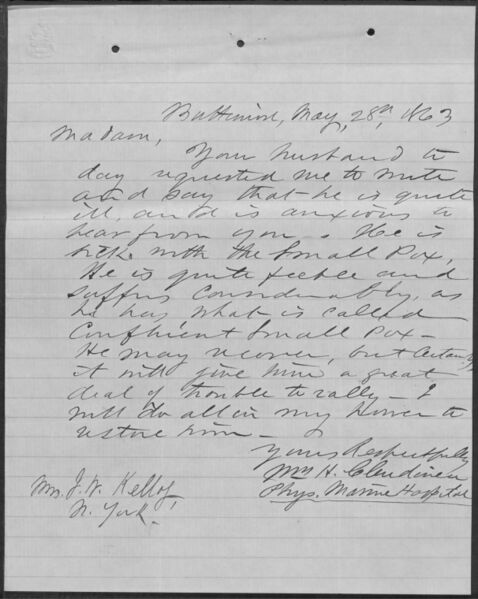 Baltimore, May, 28th, 1863
Madam,
Your husband to
day requested me to write
and say that he is quite
ill, and is anxious to
hear from you. He is
sick with the Small Pox,
He is quite feeble and
suffers considerably, as
he has what is called
Confluent Small Pox -
He may recover, but certainly
it will give him a great
deal of trouble to rally - I
will do all in my power to
restore him -
Yours Respectfully
Wm H. Clendinen
Phys. Marine Hospital
Mrs. J. W. Kelly,
N. York.